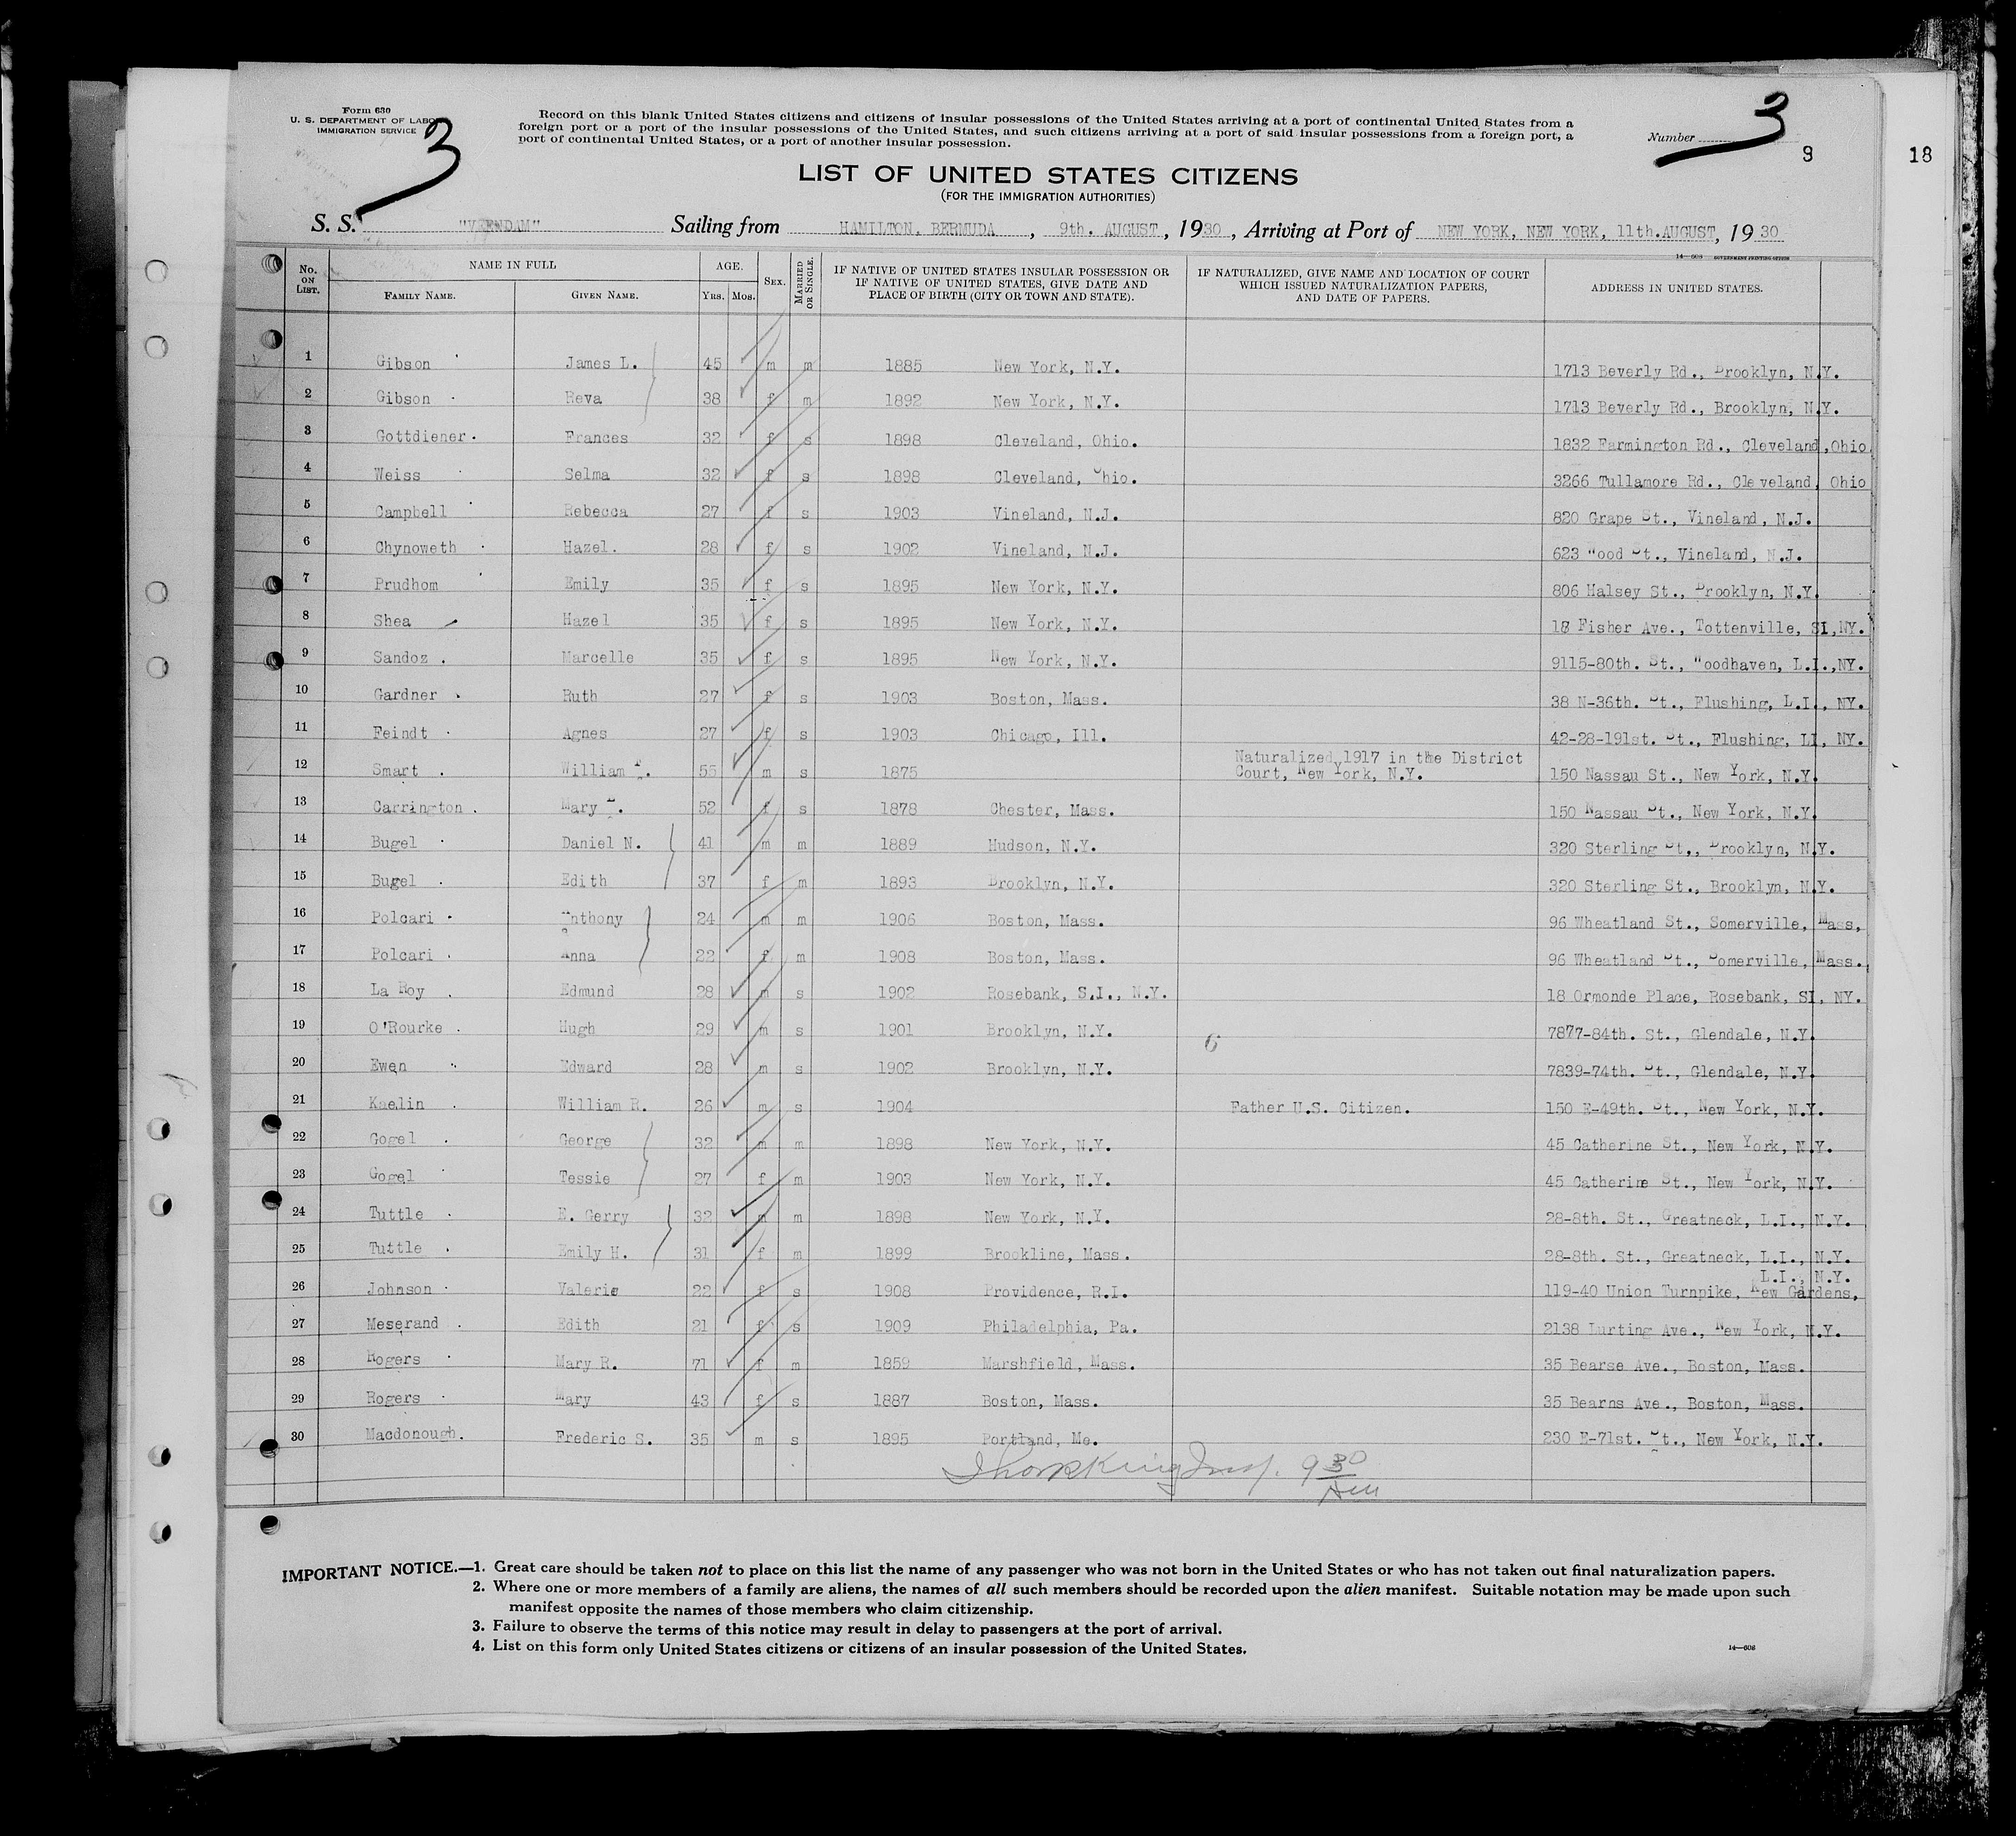 Form 630
U. S. DEPARTMENT OF LABOR
IMMIGRATION SERVICE
3
Record on this blank United States citizens and citizens of insular possessions of the United States arriving at a port of continental United States from a
foreign port or a port of the insular possessions of the United States, and such citizens arriving at a port of said insular possessions from a foreign port, a
port of continental United States, or a port of another insular possession.
Number 3
9 18
LIST OF UNITED STATES CITIZENS
(FOR THE IMMIGRATION AUTHORITIES)
S. S. "VEENDAM" Sailing from HAMILTON, BERMUDA, 9th. AUGUST, 1930, Arriving at Port of NEW YORK, NEW YORK, 11th.AUGUST, 1930
14—608 GOVERNMENT PRINTING OFFICE
No. ON LIST. NAME IN FULL FAMILY NAME. GIVEN NAME. AGE. YRS. MOS. SEX. MARRIED OR SINGLE. IF NATIVE OF UNITED STATES INSULAR POSSESSION OR IF NATIVE OF UNITED STATES, GIVE DATE AND PLACE OF BIRTH (CITY OR TOWN AND STATE). IF NATURALIZED, GIVE NAME AND LOCATION OF COURT WHICH ISSUED NATURALIZATION PAPERS, AND DATE OF PAPERS. ADDRESS IN UNITED STATES.
1 Gibson James L. 45 m m 1885 New York, N.Y. 1713 Beverly Rd., Brooklyn, N.Y.
2 Gibson Reva 38 f m 1892 New York, N.Y. 1713 Beverly Rd., Brooklyn, N.Y.
3 Gottdiener. Frances 32 f s 1898 Cleveland, Ohio. 1832 Farmington Rd., Cleveland,Ohio
4 Weiss Selma 32 f s 1898 Cleveland, Ohio. 3266 Tullamore Rd., Cleveland, Ohio
5 Campbell Rebecca 27 f s 1903 Vineland, N.J. 820 Grape St., Vineland, N.J.
6 Chynoweth Hazel. 28 f s 1902 Vineland, N.J. 623 Wood St., Vineland, N.J.
7 Prudhom Emily 35 f s 1895 New York, N.Y. 806 Halsey St., Brooklyn, N.Y.
8 Shea Hazel 35 f s 1895 New York, N.Y. 18 Fisher Ave., Tottenville, SI,NY.
9 Sandoz Marcelle 35 f s 1895 New York, N.Y. 9115-80th. St., Woodhaven, L.I.,NY.
10 Gardner Ruth 27 f s 1903 Boston, Mass. 38 N-36th. St., Flushing, L.I., NY.
11 Feindt Agnes 27 f s 1903 Chicago, Ill. 42-28-191st. St., Flushing, LI, NY.
12 Smart William 55 m s 1875 Naturalized,1917 in the District Court, New York, N.Y. 150 Nassau St., New York, N.Y.
13 Carrington Mary 52 f s 1878 Chester, Mass. 150 Nassau St., New York, N.Y.
14 Bugel Daniel N. 41 m m 1889 Hudson, N.Y. 320 Sterling St., Brooklyn, N.Y.
15 Bugel Edith 37 f m 1893 Brooklyn, N.Y. 320 Sterling St., Brooklyn, N.Y.
16 Polcari Anthony 24 m m 1906 Boston, Mass. 96 Wheatland St., Somerville, Mass,
17 Polcari Anna 22 f m 1908 Boston, Mass. 96 Wheatland St., Somerville, Mass.
18 La Roy Edmund 28 m s 1902 Rosebank, S.I., N.Y. 18 Ormonde Place, Rosebank, SI, NY.
19 O'Rourke Hugh 29 m s 1901 Brooklyn, N.Y. 6 7877-84th. St., Glendale, N.Y.
20 Ewen Edward 28 m s 1902 Brooklyn, N.Y. 7839-74th. St., Glendale, N.Y.
21 Kaelin William R. 26 m s 1904 Father U.S. Citizen. 150 E-49th. St., New York, N.Y.
22 Gogel George 32 m m 1898 New York, N.Y. 45 Catherine St., New York, N.Y.
23 Gogel Tessie 27 f m 1903 New York, N.Y. 45 Catherine St., New York, N.Y.
24 Tuttle E. Gerry 32 m m 1898 New York, N.Y. 28-8th. St., Greatneck, L.I., N.Y.
25 Tuttle Emily H. 31 f m 1899 Brookline, Mass. 28-8th. St., Greatneck, L.I., N.Y.
26 Johnson Valerie 22 f s 1908 Providence, R.I. 119-40 Union Turnpike, Kew Gardens, L.I., N.Y.
27 Meserand Edith 21 f s 1909 Philadelphia, Pa. 2138 Lurting Ave., New York, N.Y.
28 Rogers Mary R. 71 f m 1859 Marshfield, Mass. 35 Bearse Ave., Boston, Mass.
29 Rogers Mary 43 f s 1887 Boston, Mass. 35 Bearns Ave., Boston, Mass.
30 Macdonough. Frederic S. 35 m s 1895 Portland, Me. 230 E-71st. St., New York, N.Y.
9 30 Am
IMPORTANT NOTICE.—1. Great care should be taken not to place on this list the name of any passenger who was not born in the United States or who has not taken out final naturalization papers.
2. Where one or more members of a family are aliens, the names of all such members should be recorded upon the alien manifest. Suitable notation may be made upon such
manifest opposite the names of those members who claim citizenship.
3. Failure to observe the terms of this notice may result in delay to passengers at the port of arrival.
4. List on this form only United States citizens or citizens of an insular possession of the United States.
14—608